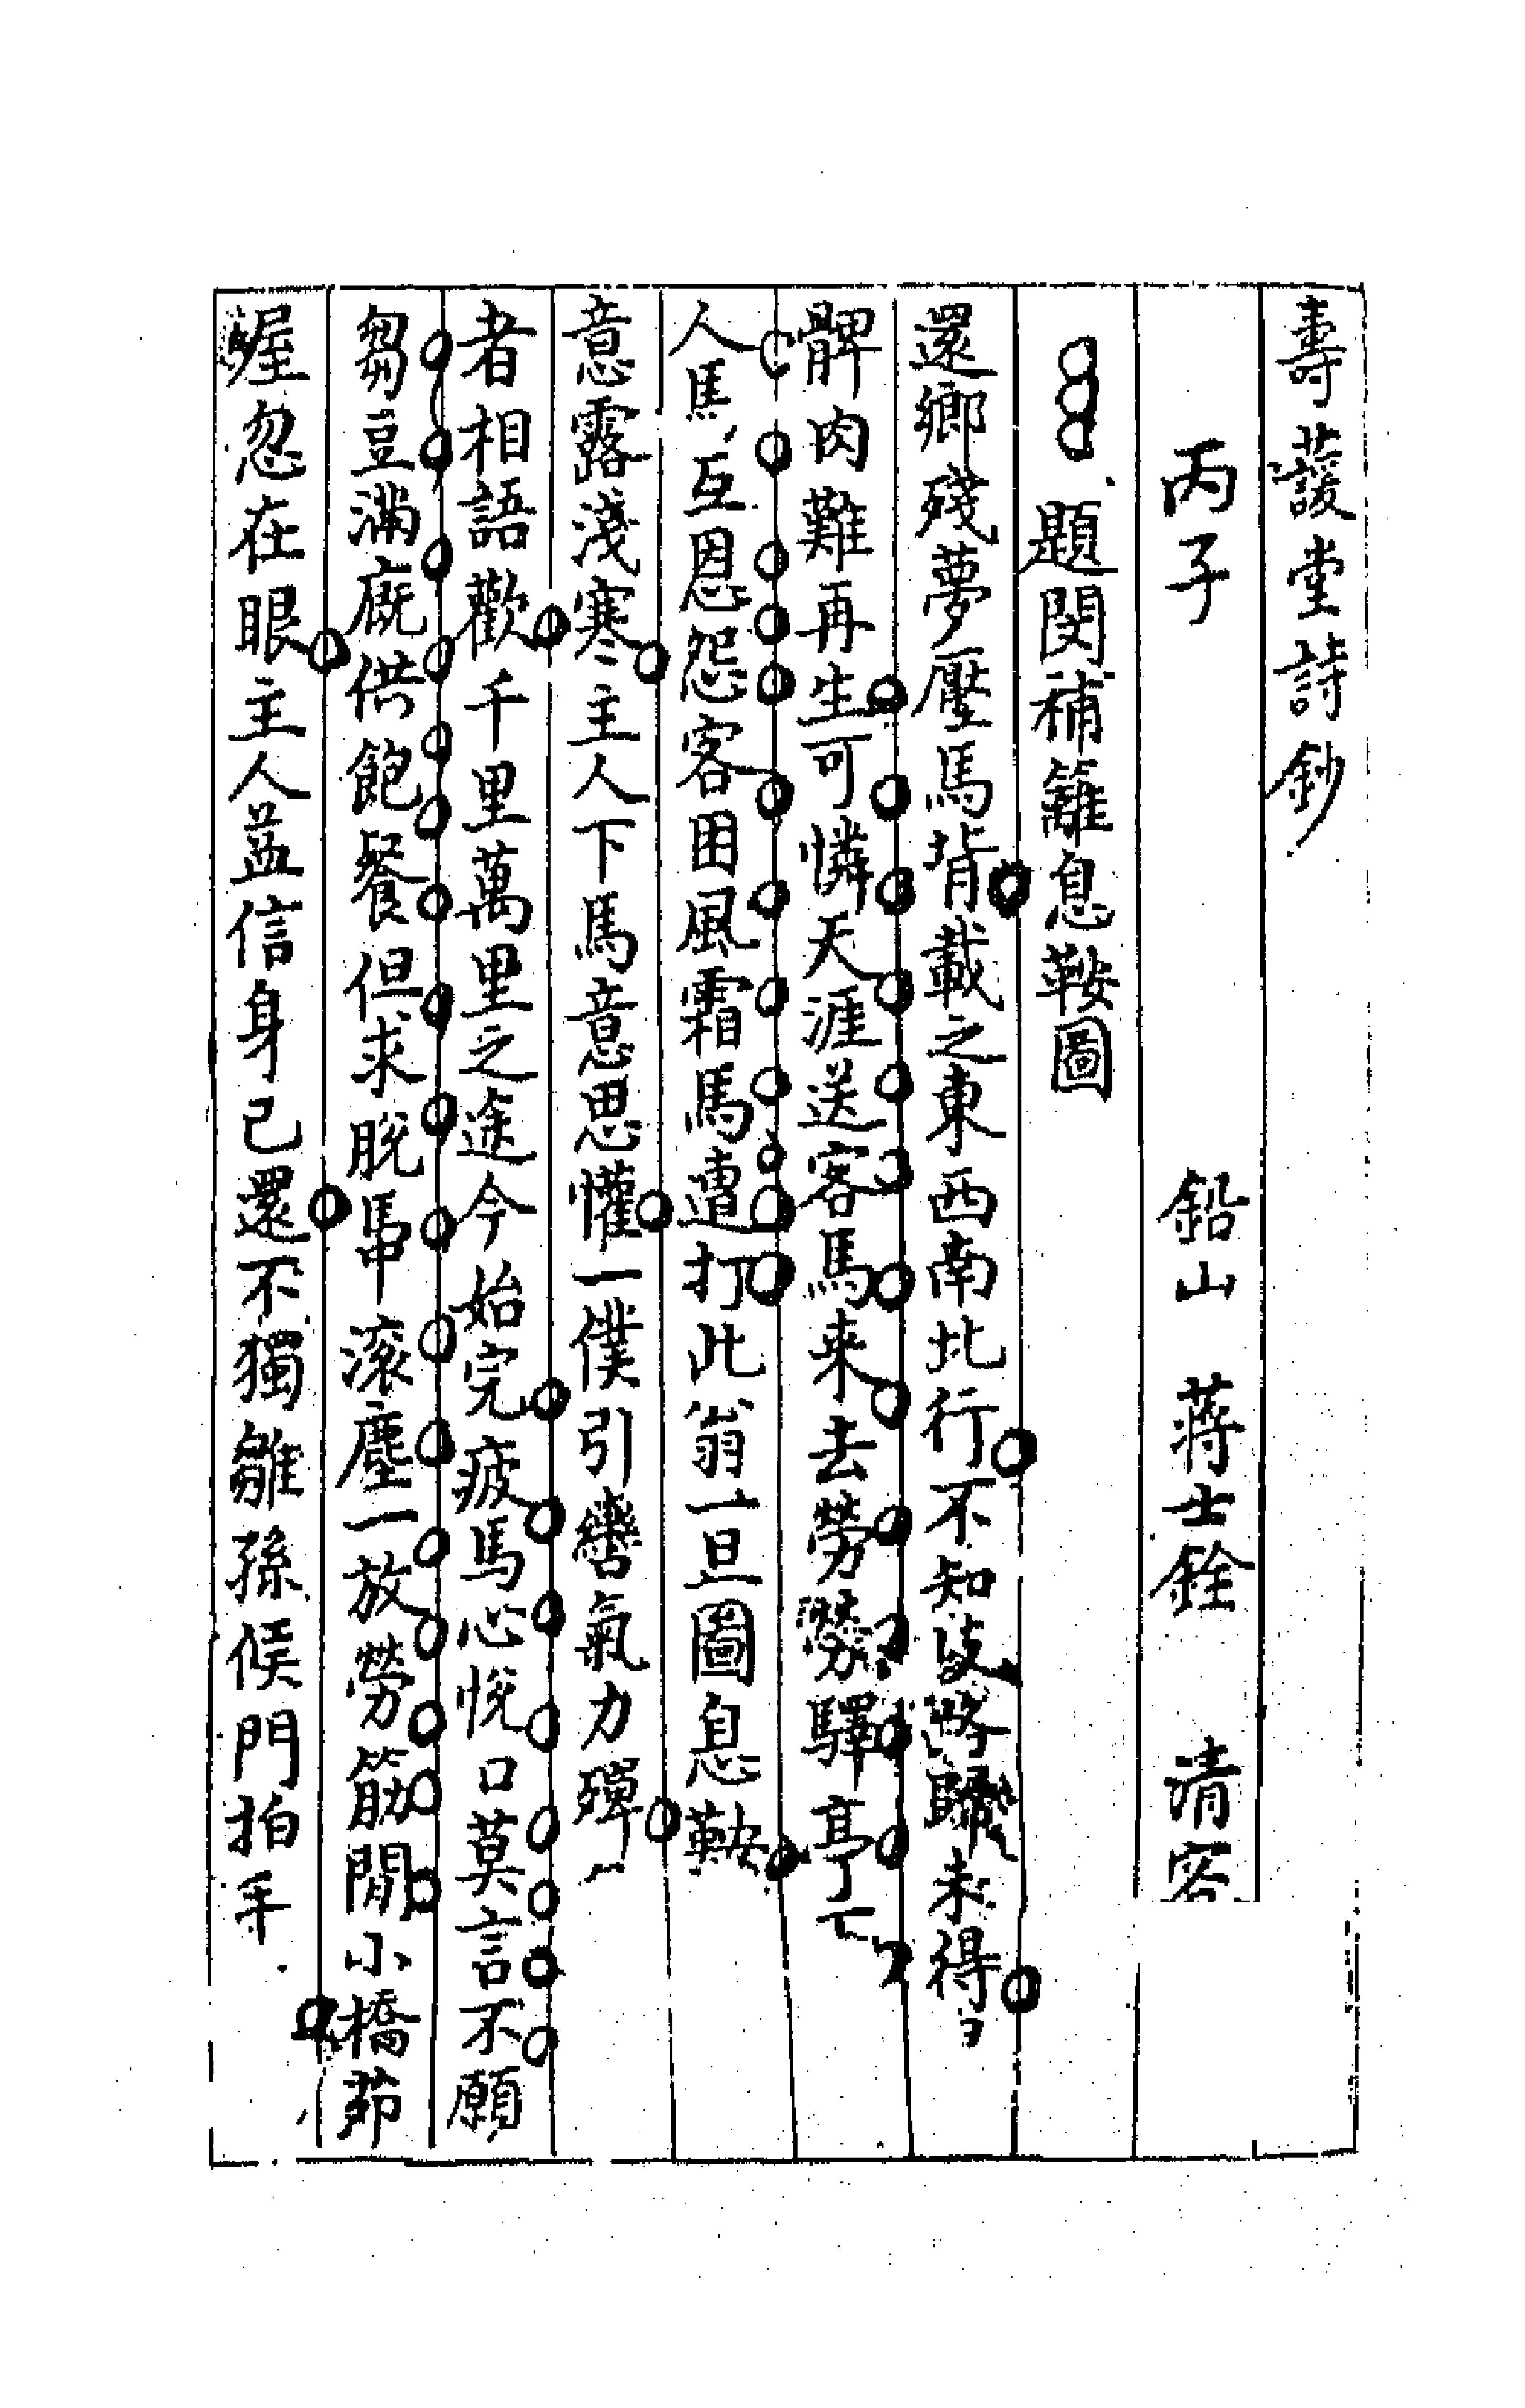 壽萲堂詩鈔
丙子 鉛山 蔣士銓 清容
題閔補籬息鞍圖
還鄉殘夢壓馬背載之東西南北行不知歧路歸未得
髀肉難再生可憐天涯送客馬来去勞勞驛亭下
人馬互恩怨客困風霜馬遭打此翁一旦圖息鞍
意露淺寒主人下馬意思懽一僕引轡氣力殫二
者相語歡千里萬里之途今始完疲馬心悅口莫言不願
芻豆滿廐供飽餐但求脫馽滚塵一放勞筋閒小橋茆
屋忽在眼主人益信身已還不獨雛孫候門拍手